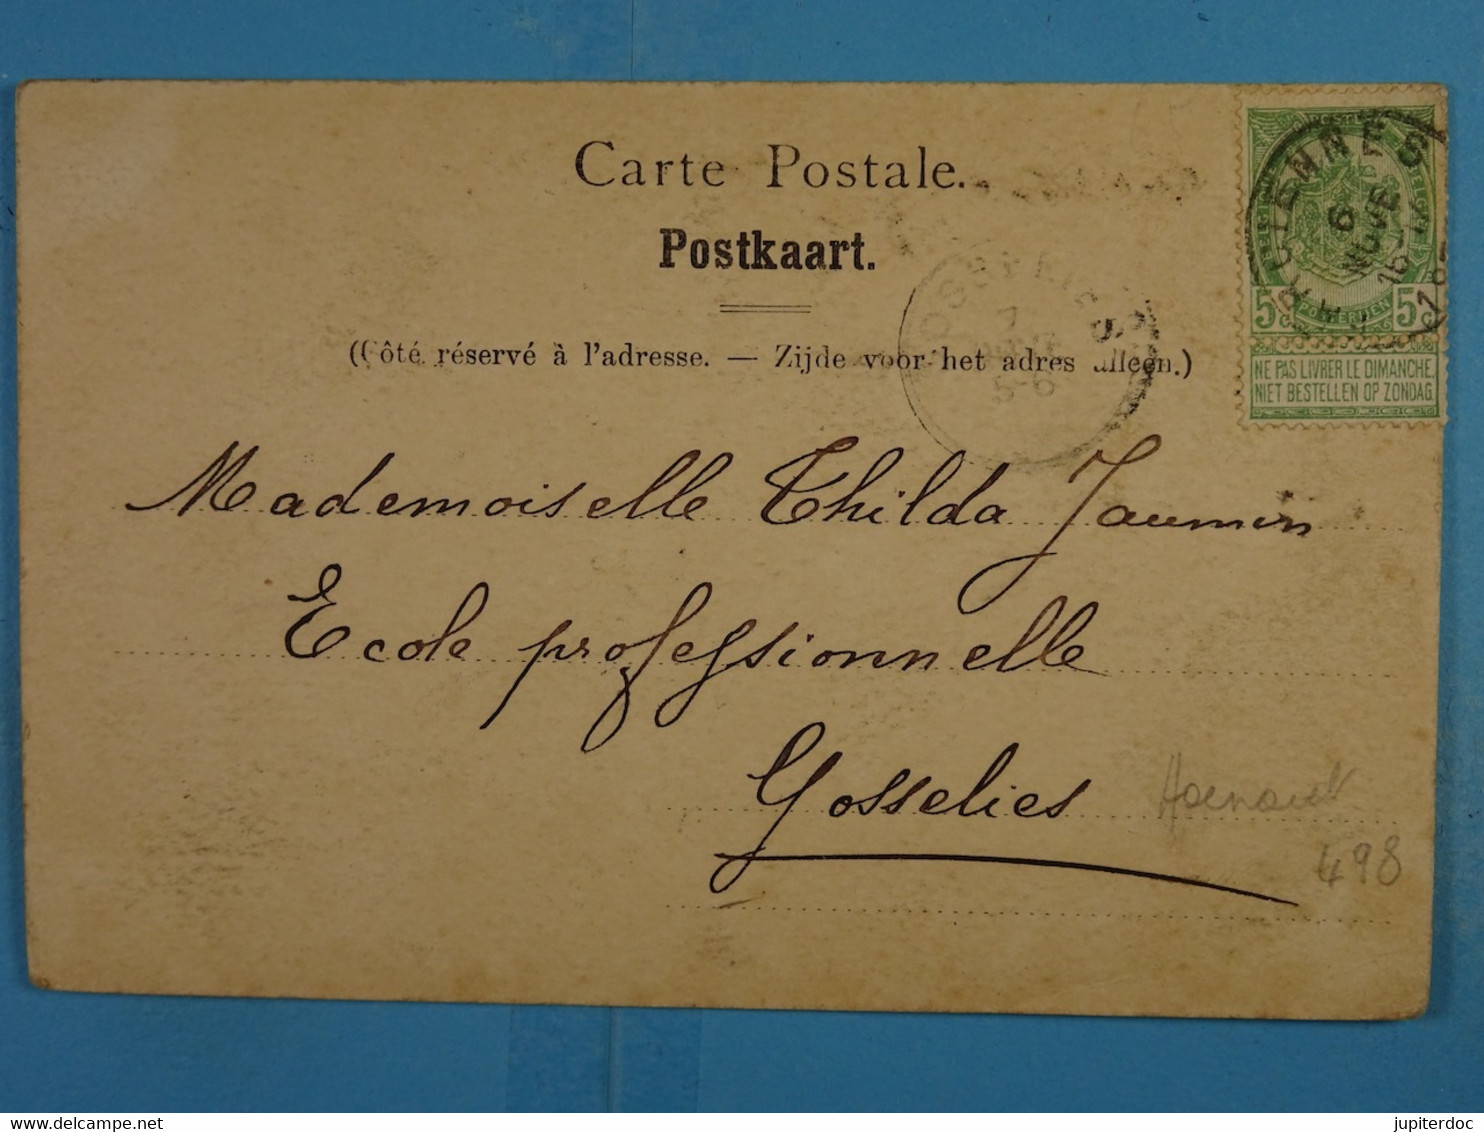 Carte Postale.
Postkaart.
(Côté réservé à l'adresse. — Zijde voor het adres alleen.)
5 5
NE PAS LIVRER LE DIMANCHE.
NIET BESTELLEN OP ZONDAG
Mademoiselle Thilda Jaumin
Ecole professionnelle
Gosselies
498
delcampe.net
jupiterdoc